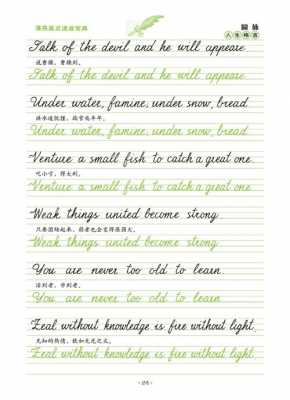 人生格言
Talk of the devil and he will appeare.
说曹操，曹操到。
Talk of the devil and he will appeare.
Under water, famine; under snow, bread.
Under water, famine; under snow, bread.
Venture a small fish to catch a great one.
吃小亏，得大利。
Venture a small fish to catch a great one.
Weak things united become strong.
Weak things united become strong.
You are never too old to learn.
活到老，学到老。
You are never too old to learn.
Zeal without knowledge is fire without light.
无知的热情，犹如无光之火。
Zeal without knowledge is fire without light.